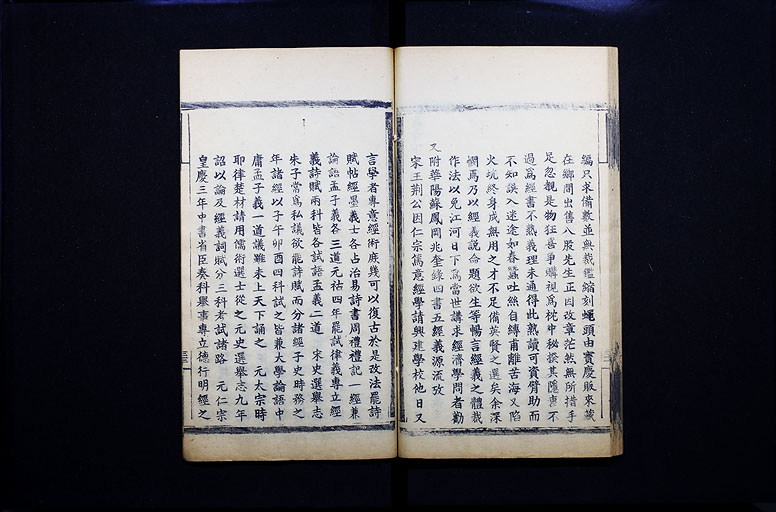 編只求備數並無裁鑑縮刻蠅頭由寶慶販來藏
在鄉間出售八股先生正因改章茫然無所措手
足忽覩是物狂喜爭購視爲枕中秘探其隨喪不
過爲經書不熟義理未通得此熟讀可資臂助而
不知誤入迷途如春蠶吐絲自縛甫離苦海又陷
火坑終身成無用之才不足備英賢之選矣余深
憫焉乃以經義說命題欲生等暢言經義之體裁
作法以免江河日下爲當世講求經濟學問者勸
又附華陽蘇鳳岡兆奎錄四書五經義源流攷
宋王荊公因仁宗篤意經學請興建學校他日又
言學者專意經術庶幾可以復古於是改法罷詩
賦帖經墨義士各占治易詩書周禮禮記一經兼
論語孟子義各三道元祐四年罷試律義專立經
義詩賦兩科皆各試語孟義二道 宋史選舉志
朱子當爲私議欲罷詩賦而分諸經子史時務之
年諸經以子午卯酉四科試之皆兼大學論語中
庸孟子義一道議雖未上天下誦之 元太宗時
耶律楚材請用儒術選士從之元史選舉志九年
詔以論及經義詞賦分三科考試諸路 元仁宗
皇慶三年中書省臣奏科舉事專立德行明經之